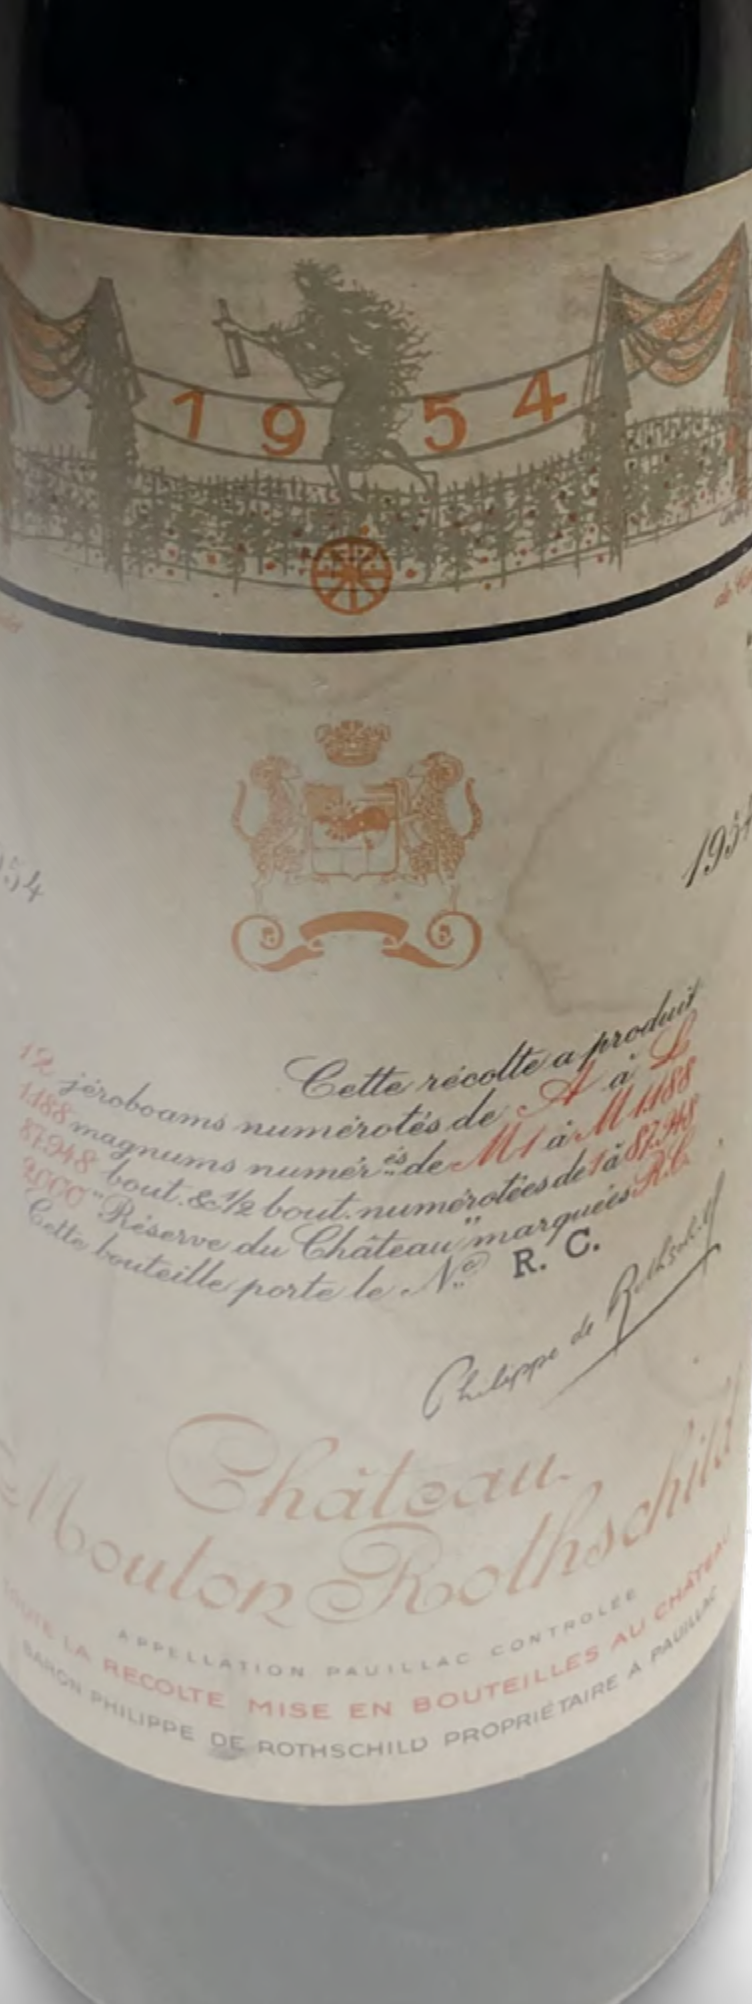 1954
1954
Cette récolte a produit
12 jéroboams numérotés de A à L
1188 magnums numérés de M1 à M1188
87.948 bout. & 1/2 bout. numérotées de 1 à 87.948
2000 "Réserve du Château" marquées R.C.
Cette bouteille porte le No R. C.
Philippe de Rothschild
Château
Mouton Rothschild
APPELLATION PAUILLAC CONTROLÉE
TOUTE LA RÉCOLTE MISE EN BOUTEILLES AU CHÂTEAU
BARON PHILIPPE DE ROTHSCHILD PROPRIÉTAIRE A PAUILLAC